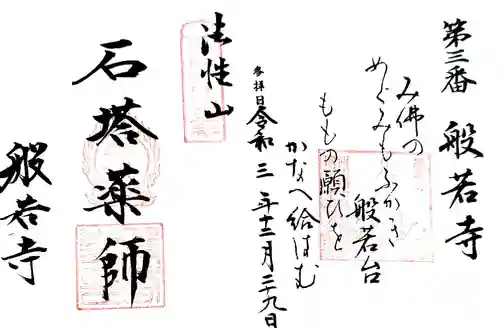 第三番 般若寺
み佛の
めぐみもふかき
般若台
もものの願ひを
かなへ給はむ
参拝日 令和三年十二月二十九日
法性山
石塔薬師
般若寺